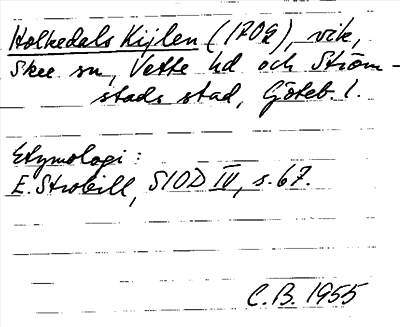 Holkedals Kijlen (1702), vik,
Skee sn, Vette hd och Ström-
stads stad, Göteb. l.
Etymologi:
E. Strobill, SIOD IV, s. 67.
C.B. 1955